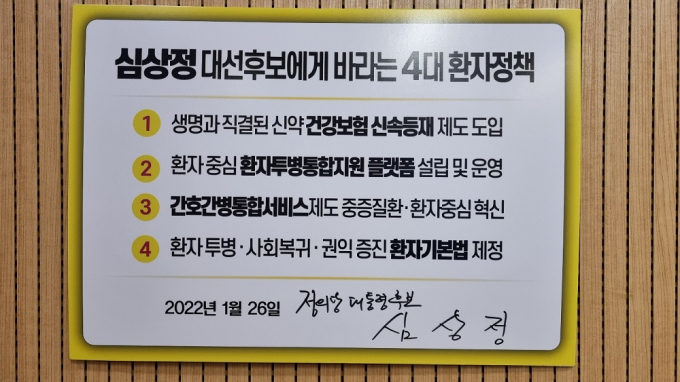 심상정 대선후보에게 바라는 4대 환자정책
1 생명과 직결된 신약 건강보험 신속등재 제도 도입
2 환자 중심 환자투병통합지원 플랫폼 설립 및 운영
3 간호간병통합서비스제도 중증질환·환자중심 혁신
4 환자 투병·사회복귀·권익 증진 환자기본법 제정
2022년 1월 26일 정의당 대통령후보
심상정